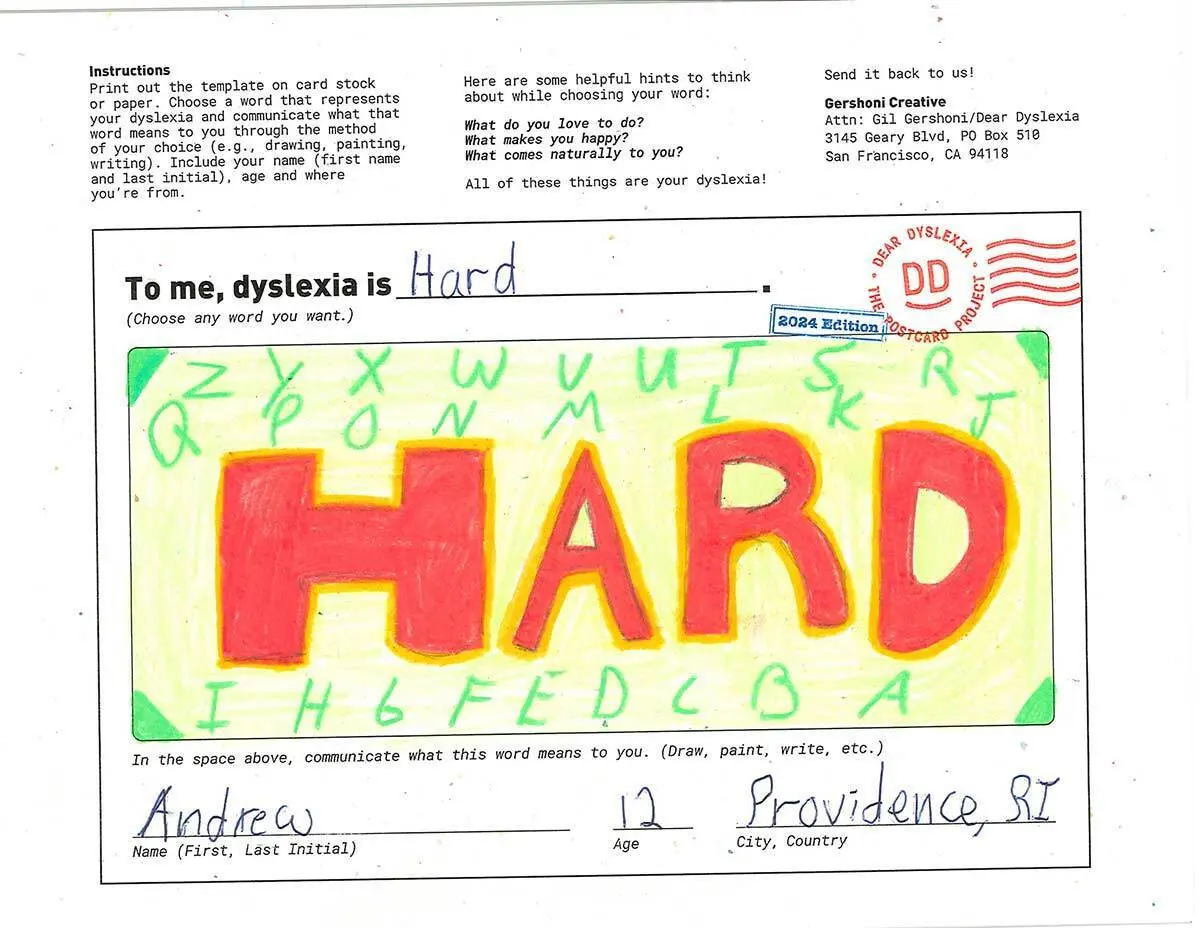 Instructions
Print out the template on card stock
or paper. Choose a word that represents
your dyslexia and communicate what that
word means to you through the method
of your choice (e.g., drawing, painting,
writing). Include your name (first name
and last initial), age and where
you're from.
Here are some helpful hints to think
about while choosing your word:
What do you love to do?
What makes you happy?
What comes naturally to you?
All of these things are your dyslexia!
Send it back to us!
Gershoni Creative
Attn: Gil Gershoni/Dear Dyslexia
3145 Geary Blvd, PO Box 510
San Francisco, CA 94118
To me, dyslexia is Hard.
(Choose any word you want.)
DEAR DYSLEXIA • THE POSTCARD PROJECT •
DD
2024 Edition
Z Y X W V U T S R
Q P O N M L K J
HARD
I H G F E D C B A
In the space above, communicate what this word means to you. (Draw, paint, write, etc.)
Andrew 12 Providence, RI
Name (First, Last Initial) Age City, Country